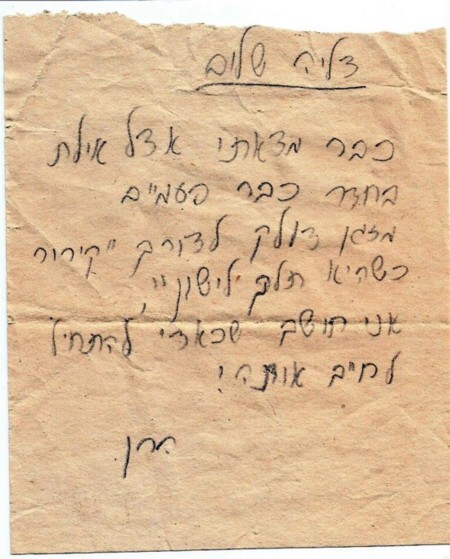 דליה שלום
כבר מצאתי אצל אילת
בחדר כבר פעמיים
מזגן דולק לצורך "קירור
כשהיא תלך לישון",
אני חושב שכדאי להתחיל
לחייב אותה!
חרן